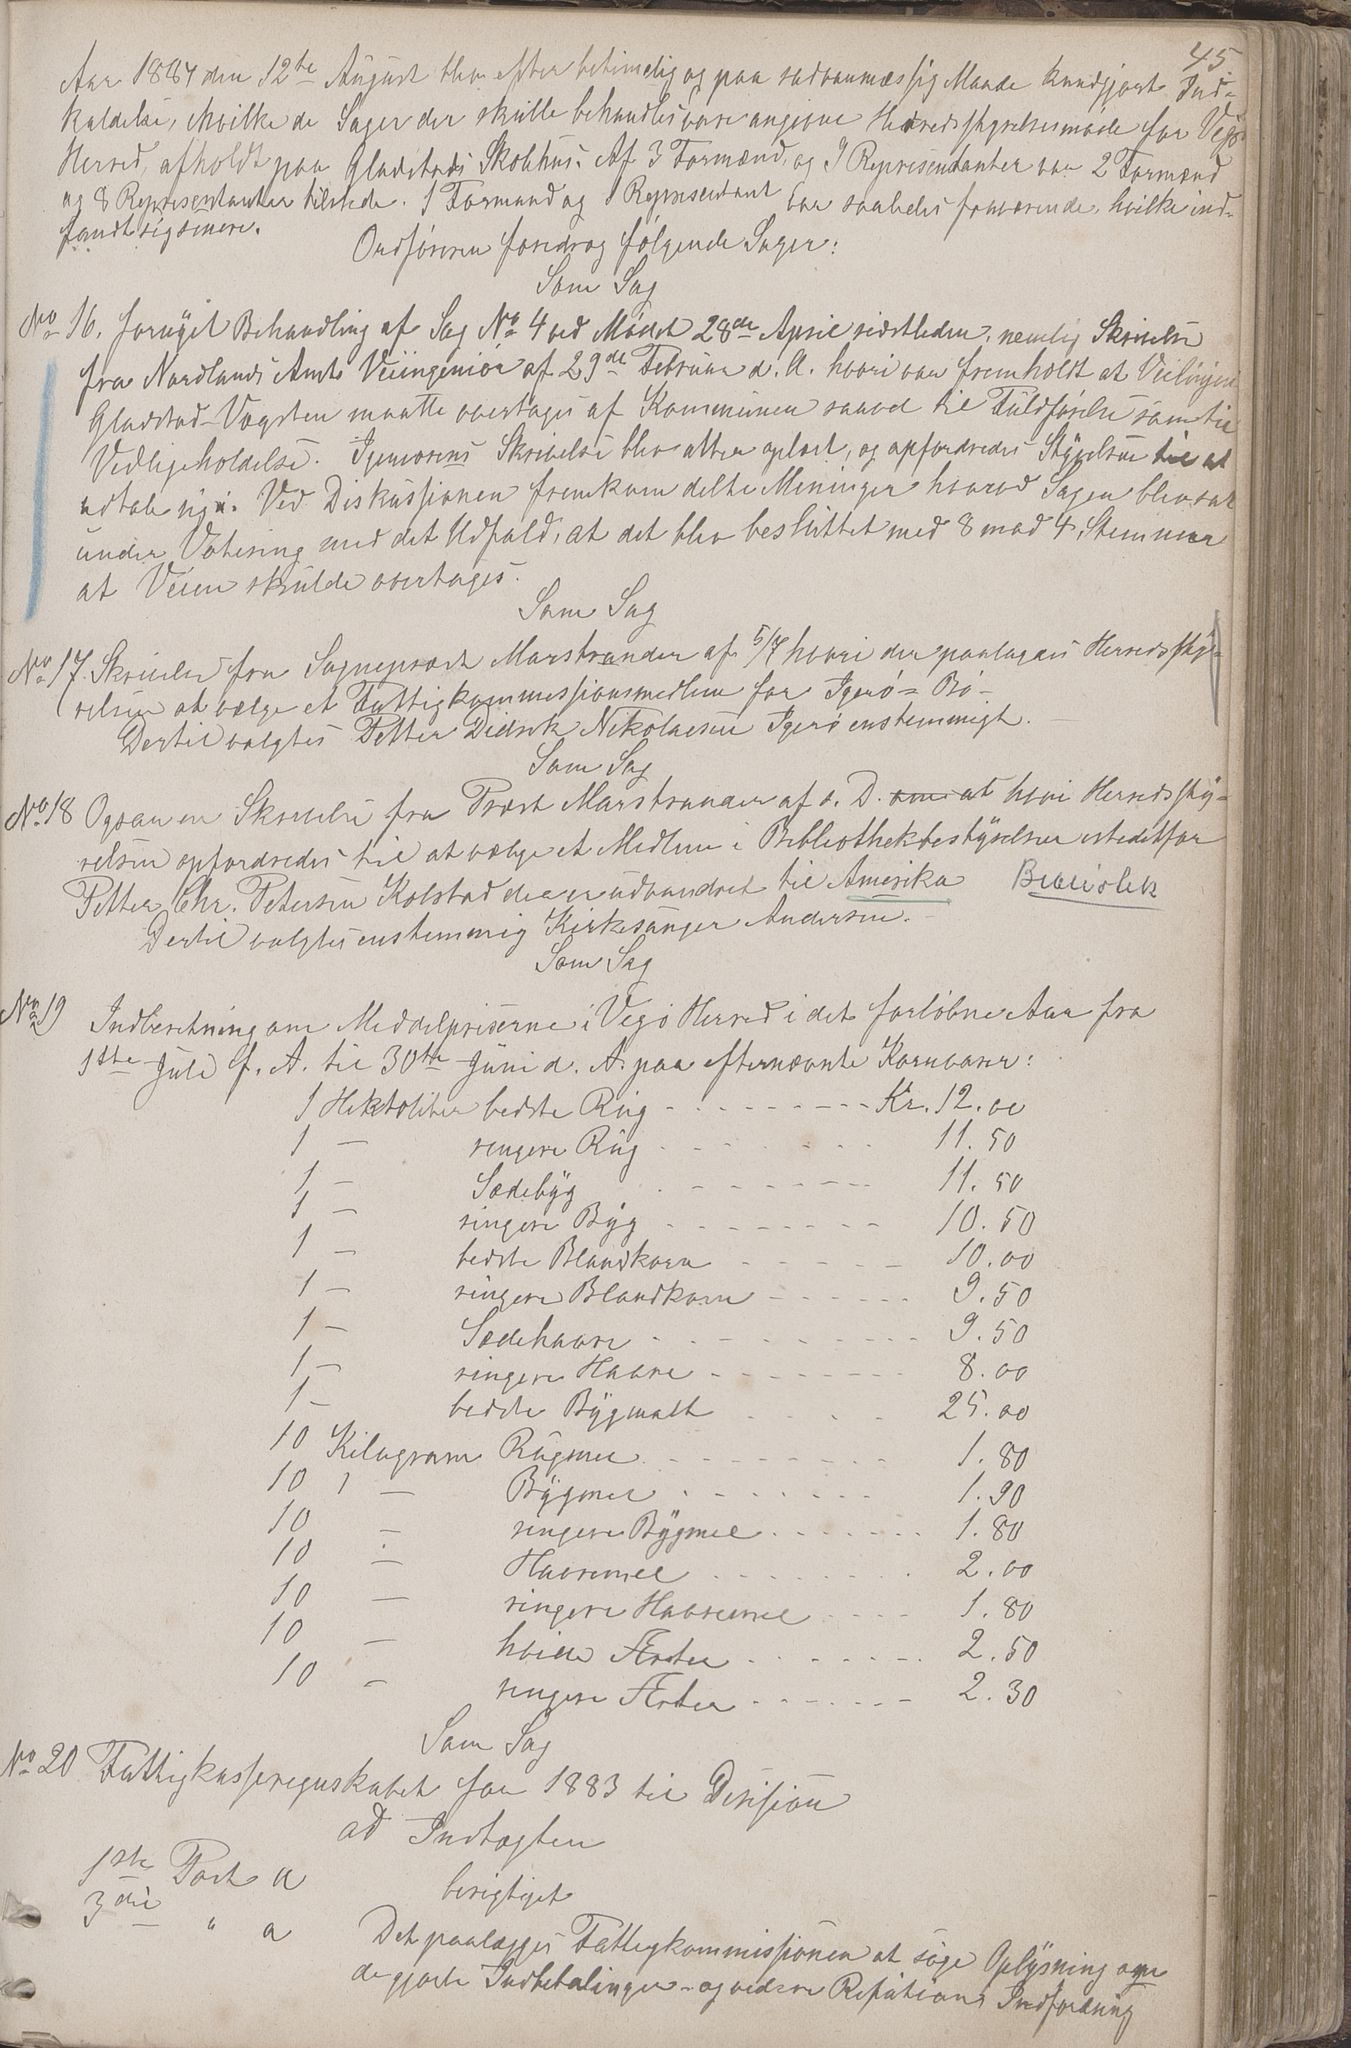 45
Aar 1884 den 12te August blev efter betimelig og paa sædvanmæssig Maade kundgjort Ind-
kaldelse, hvilke de Sager der skulle behandles vare angivne Herredsstyrelsesmøde for Vegø
Herred, afholdt paa Gladstads Skolehus. Af 3 Formænd, og 9 Representanter var 2 Formænd
og 8 Representanter tilstede. 1 Formand og 1 Representant var saaledes fraværende, hvilke ind-
fandt sig senere.
Ordføreren foredrog følgende Sager:
Som Sag
No 16. fornyet Behandling af Sag No 4 ved Mødet 28de April sidstleden, nemlig Skrivelse
fra Nordlands Amts Veiingeniør af 29de Februar d. A. hvori var fremholdt at Veilinjen
Gladstad-Vægsten maatte overtages af Kommunen saavel til Fuldførelse som til
Vedligeholdelse. Igeniørens Skrivelse blev atter oplæst, og opfordredes Styrelsen til at
udtale sig. Ved Diskussionen fremkom delte Meninger hvorved Sagen blev sat
under Votering med det Udfald, at det blev besluttet med 8 mod 4 Stemmer
at Veien skulde overtages.
Som Sag
No 17. Skrivelse fra Sogneprest Marstrander af 5/7 hvori der paalægges Herredssty-
relsen at vælge et Fattigkommissionsmedlem for Igerø-Bø-
Dertil valgtes Petter Didrik Nikolaisen Igerø enstemmigt.
Som Sag
No 18 Ogsaa en Skrivelse fra Præst Marstrander af s. D. om at hvori Herredssty-
relsen opfordredes til at vælge et Medlem i Bibliothekbestyrelsen istedetfor
Petter Chr. Petersen Kolstad der er udvandret til Amerika Bibliotek
Dertil valgtes enstemmig Kirkesanger Andersen.
Som Sag
No 19 Indberetning om Middelpriserne i Vegø Herred i det forløbne Aar fra
1ste Juli f. A. til 30te Juni d. A. paa efternævnte Kornvarer:
1 Hektoliter bedste Rug - - - - - - - - - Kr. 12.00
1 — ringere Rug - - - - - - - 11.50
1 — Sædebyg - - - - - - - 11.50
1 — ringere Byg - - - - - - - 10.50
1 — bedste Blandkorn - - - - - 10.00
1 — ringere Blandkorn - - - - - 9.50
1 — Sædehavre - - - - - - - - 9.50
1 — ringere Havre - - - - - - 8.00
1 — bedste Bygmalt - - - - 25.00
10 Kilogram Rugmel - - - - - - - - 1.80
10 " — Bygmel - - - - - - 1.90
10 — ringere Bygmel - - - - - - 1.80
10 — Havremel - - - - - - - 2.00
10 — ringere Havremel - - - - 1.80
10 — hvide Ærter - - - - - - - 2.50
10 — ringere Ærter - - - - - - 2.30
Som Sag
No 20 Fattigkasseregnskabet for 1883 til Desision
ad Indtægten
1ste Post a berigtiget
3die " a Det paalægges Fattigkommissionen at søge Oplysning om
de gjorte Indbetalinger - og videre Refusions Indfordring